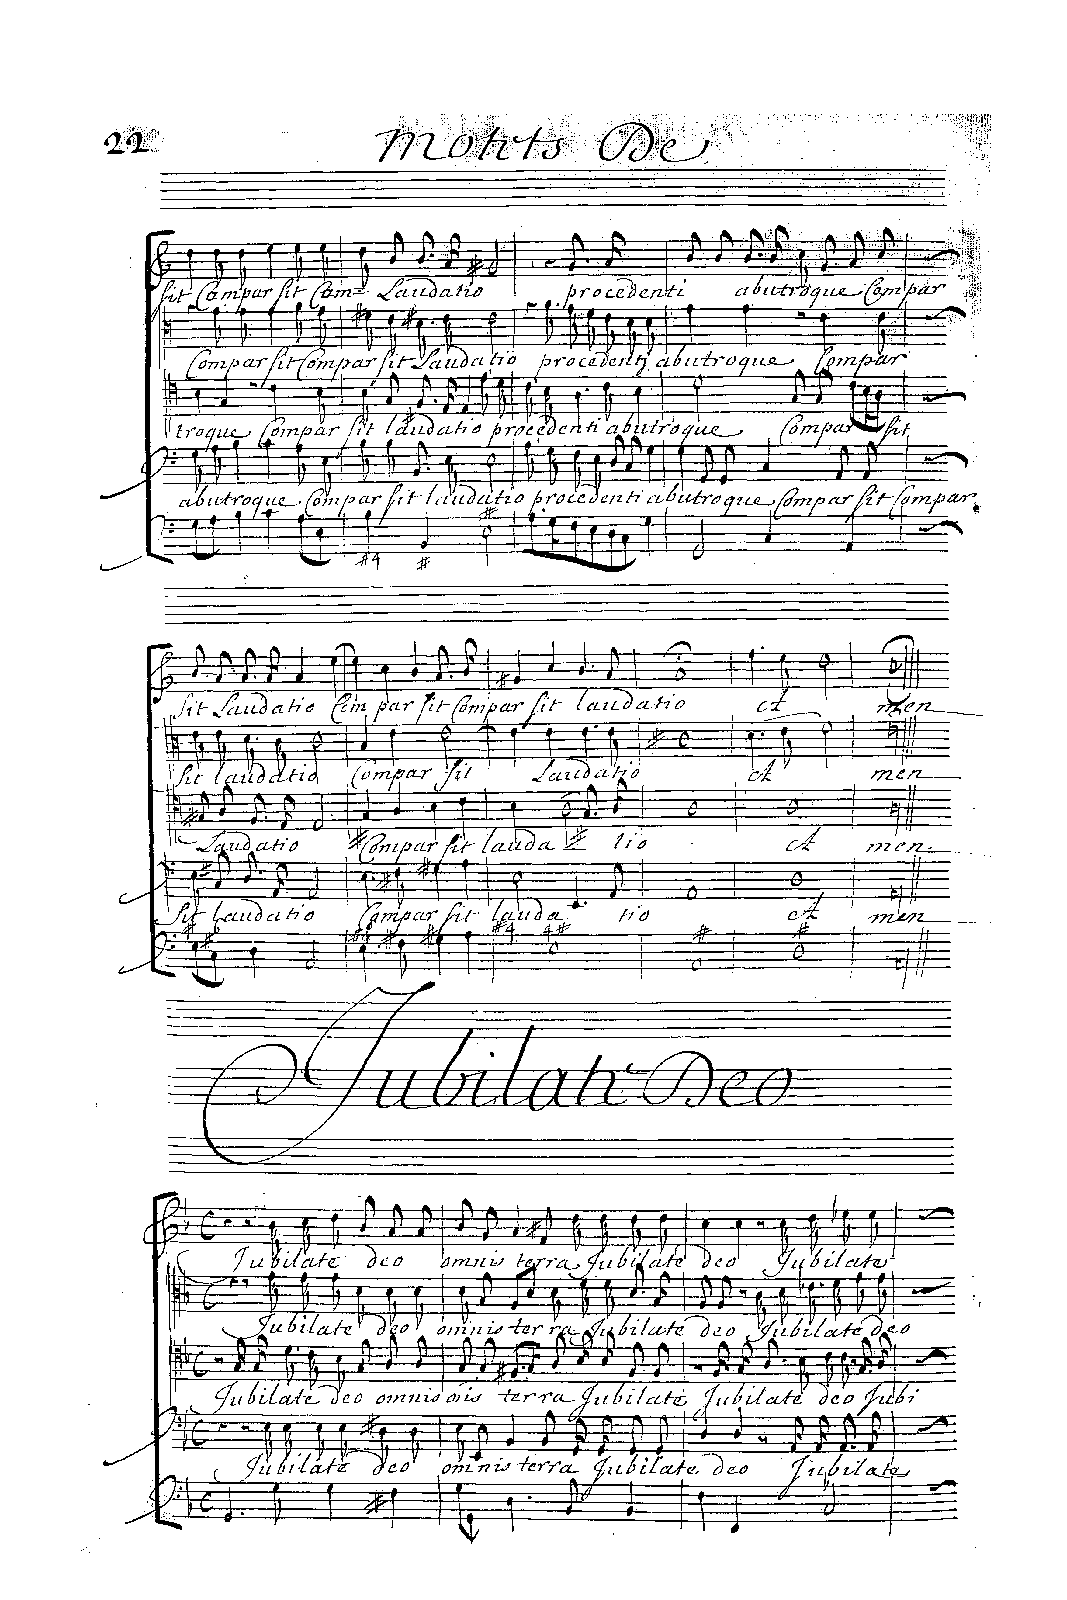 22 Motets De
sit Compar sit Com= Laudatio procedenti abutroque Compar
Compar sit Compar sit Laudatio procedenti abutroque Compar
troque Compar sit laudatio procedenti abutroque Compar sit
abutroque Compar sit laudatio procedenti abutroque Compar sit Compar
#4 #
sit Laudatio Com par sit Compar sit laudatio A men
sit laudatio Compar sit Laudatio A men
Laudatio Compar sit lauda tio A men.
sit laudatio Compar sit lauda tio A men
Jubilate Deo
Jubilate deo omnis terra Jubilate deo Jubilate
Jubilate deo omnis terra Jubilate deo Jubilate deo
Jubilate deo omnis oīs terra Jubilate Jubilate deo Jubi
Jubilate deo omnis terra Jubilate deo Jubilate